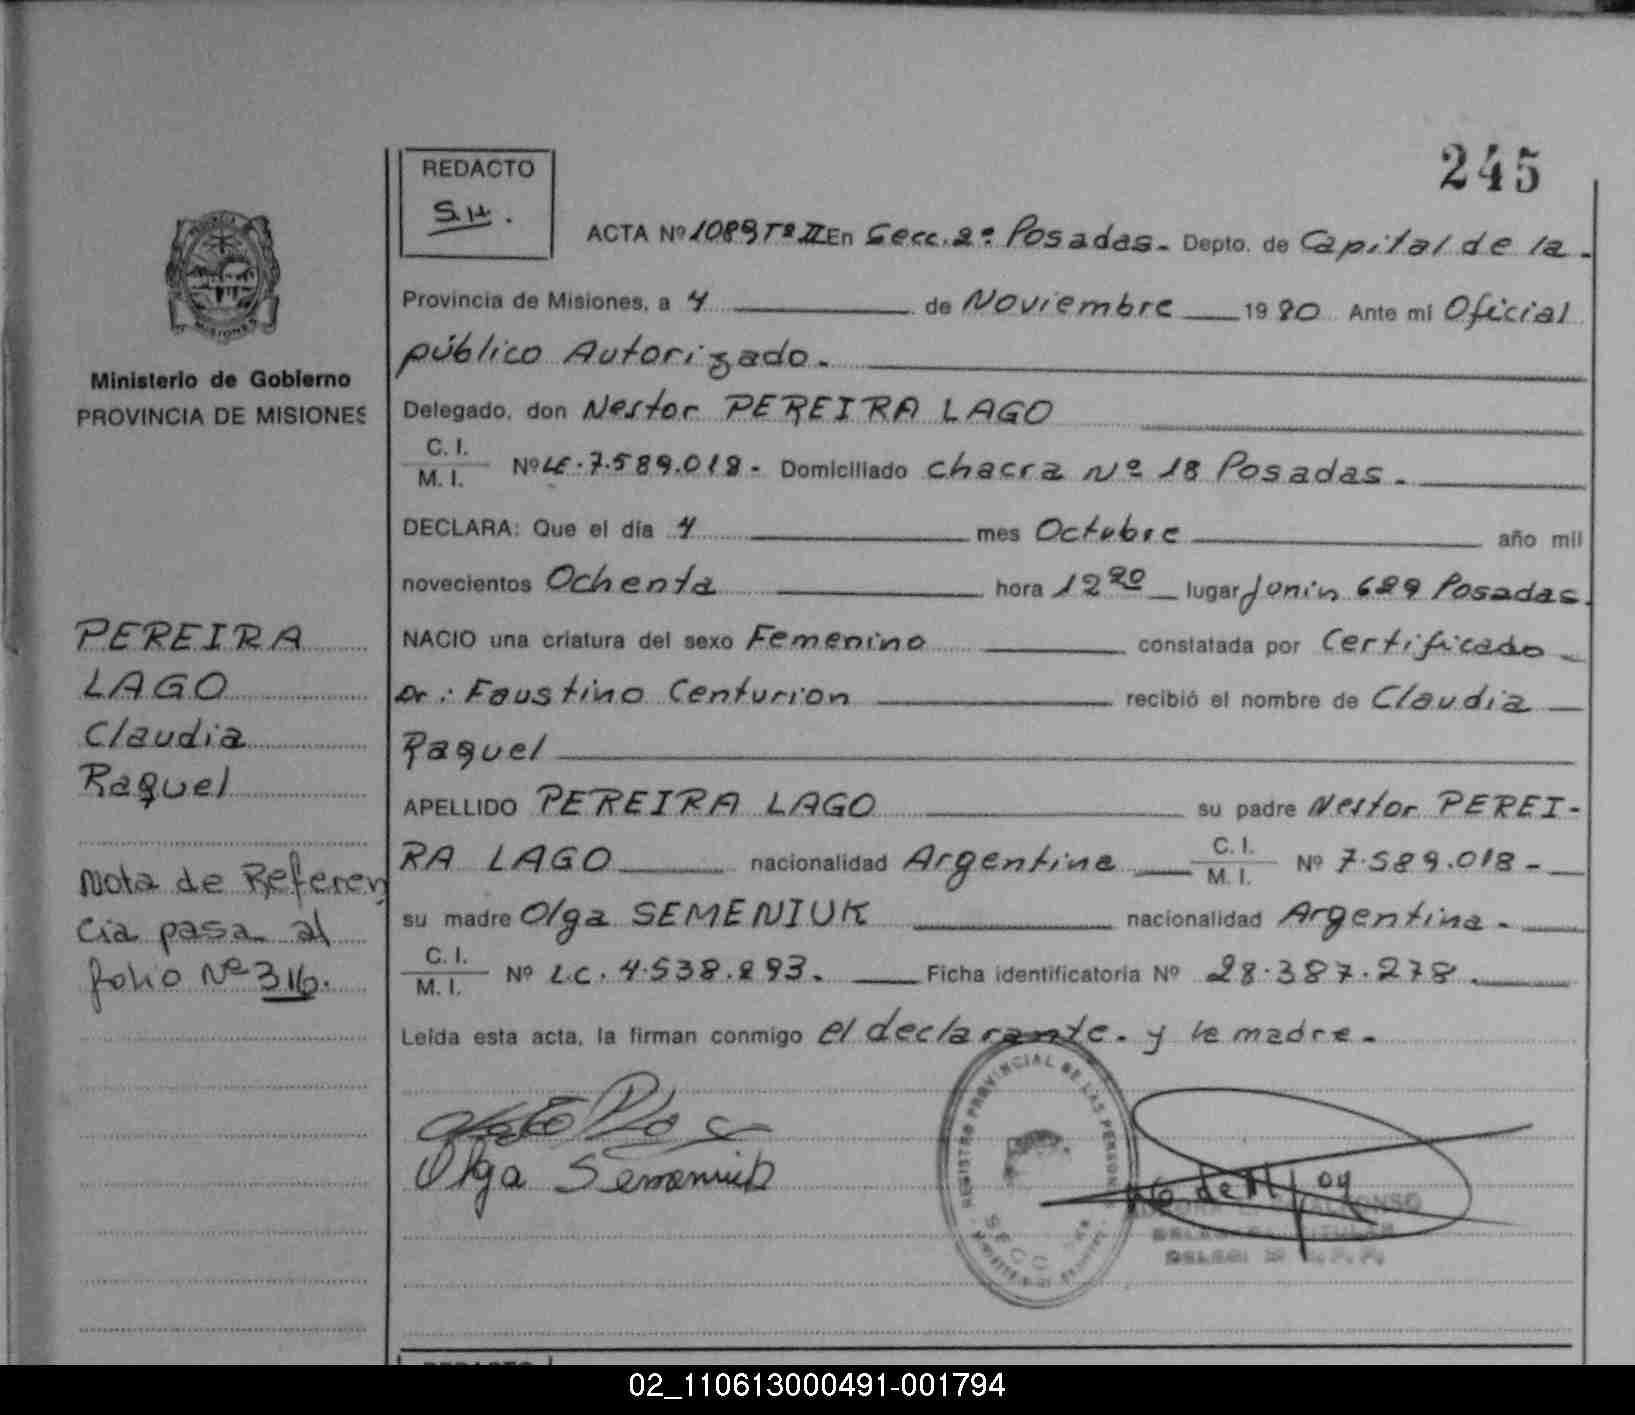 245
REDACTO
S.H.
ACTA Nº 1089 Tº II En Secc. 2º Posadas. Depto. de Capital de la.
Provincia de Misiones, a 4 de Noviembre 1980 Ante mi Oficial
público Autorizado.
Ministerio de Gobierno
PROVINCIA DE MISIONES
Delegado, don Nestor PEREIRA LAGO
C. I.
M. I. Nº LE. 7.589.018. Domiciliado chacra Nº 18 Posadas.
DECLARA: Que el día 4 mes Octubre año mil
novecientos Ochenta hora 12 20 lugar Junin 689 Posadas.
PEREIRA
LAGO
Claudia
Raquel
NACIO una criatura del sexo Femenino constatada por Certificado
Dr.: Faustino Centurion recibió el nombre de Claudia
Raquel
APELLIDO PEREIRA LAGO su padre Nestor PEREI-
RA LAGO nacionalidad Argentina C. I.
M. I. Nº 7.589.018-
Nota de Referen
cia pasa al
folio Nº 316.
su madre Olga SEMENIUK nacionalidad Argentina.
C. I.
M. I. Nº L.C. 4.538.893. Ficha identificatoria Nº 28.387.278.
Leída esta acta, la firman conmigo el declarante. y la madre.
Olga Semeniuk
REGISTRO PROVINCIAL DE LAS PERSONAS
SECC
TITULAR
02_110613000491-001794